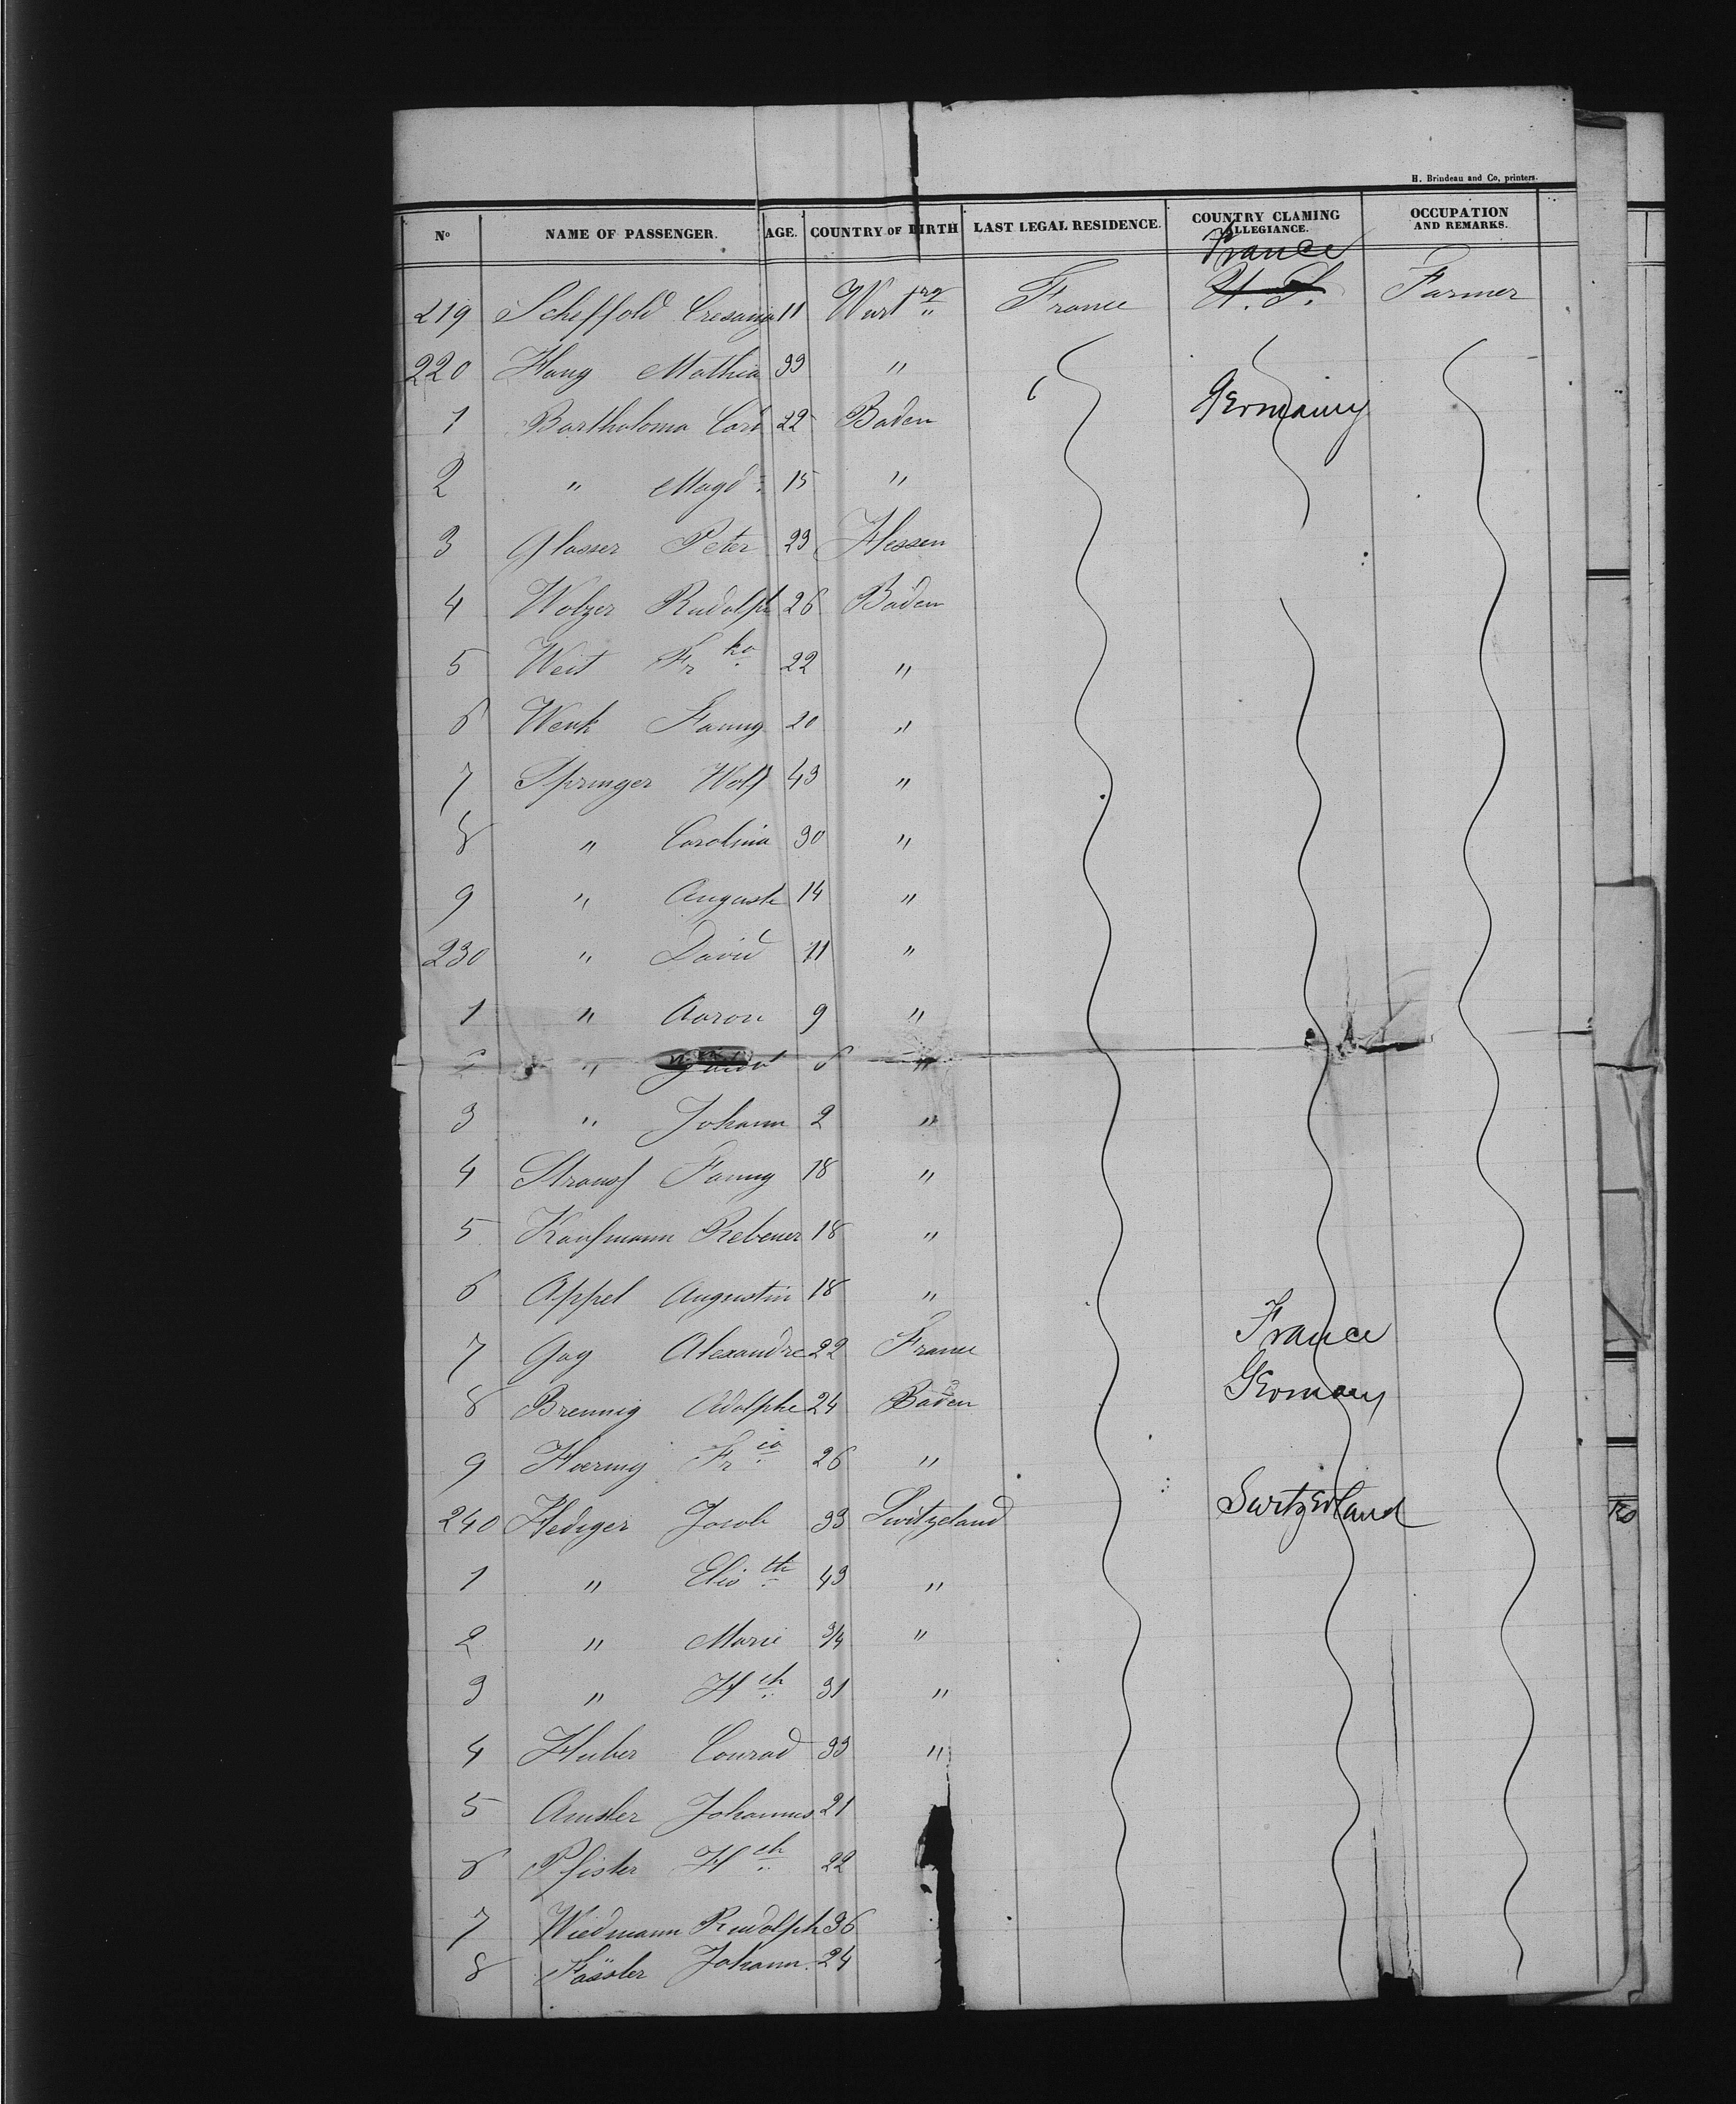 H. Brindeau and Co, printers.
No NAME OF PASSENGER. AGE. COUNTRY OF BIRTH LAST LEGAL RESIDENCE. COUNTRY CLAMING ALLEGIANCE. OCCUPATION AND REMARKS.
France
219 Scheffold 11 Wurtrg France U. S. Farmer
220 Haug Mathia 33 "
1 Bartholoma Carl 22 Baden Germainy
2 " Magd. 15 "
3 Glasser Peter 23 Hessen
4 Wolzer Rudolph 26 Baden
5 Weit Frka 22 "
6 Wenk Fanny 20 "
7 Springer Wolf 43 "
8 " Carolina 30 "
9 " Auguste 14 "
230 " David 11 "
1 " Aaron 9 "
2 " 6 "
3 " Johann 2 "
4 Strauss Fanny 18 "
5 Kaufmann 18 "
6 Appel Augustin 18 "
7 Gay Alexandre 22 France France
8 Brennig Adolphe 24 Baden Germany
9 Hoering 26 "
240 Hediger Jacob 33 Switzeland Switzerland
1 " Elisth 43 "
2 " Marie 3/4 "
3 " Hch 31 "
4 Huber Conrad 33 "
5 Amsler Johannes 21
6 Pfister Hch 22
7 Wiedmann Rudolph 36
8 Fässler Johann. 24